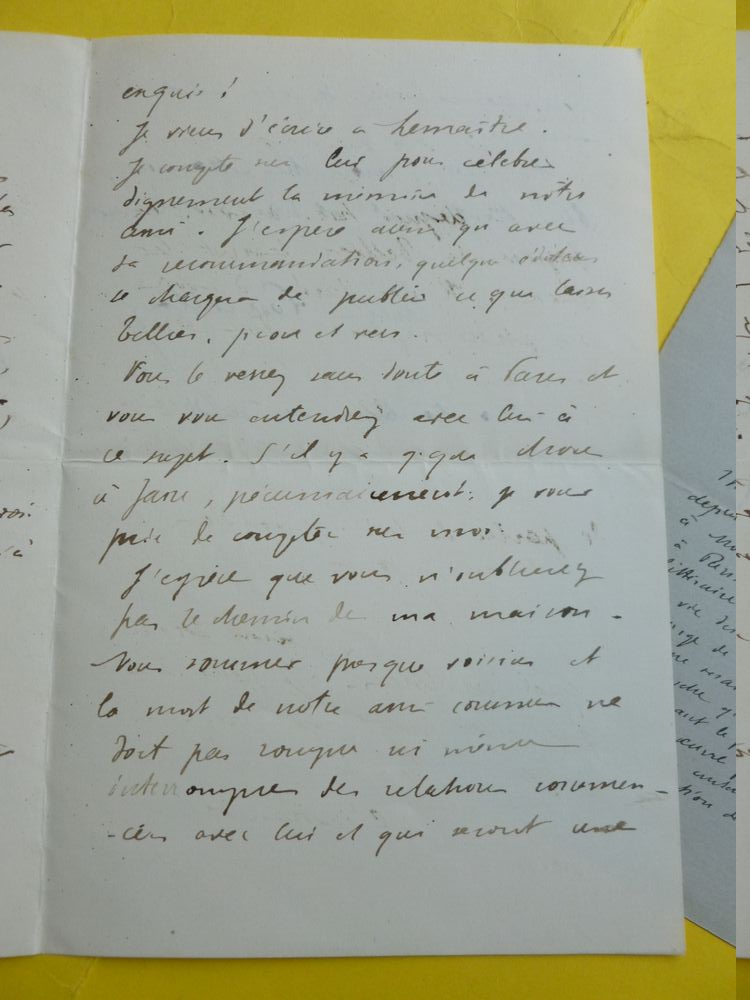 exquis !
Je viens d'écrire à Lemaître.
Je compte sur lui pour célébrer
dignement la mémoire de notre
ami. J'espère aussi qu'avec
sa recommandation, quelque éditeur
se chargera de publier ce que laisse
Tellier, prose et vers.
Vous le verrez sans doute à Paris et
vous vous entendrez avec lui à
ce sujet. S'il y a qque chose
à faire, pécuniairement, je vous
prie de compter sur moi.
J'espère que vous n'oublierez
pas le chemin de ma maison.
Nous sommes presque voisins et
la mort de notre ami commun ne
doit pas rompre ni même
interrompre des relations commen-
-cées avec lui et qui seront une
depuis
à
à Paris
littéraire
vie